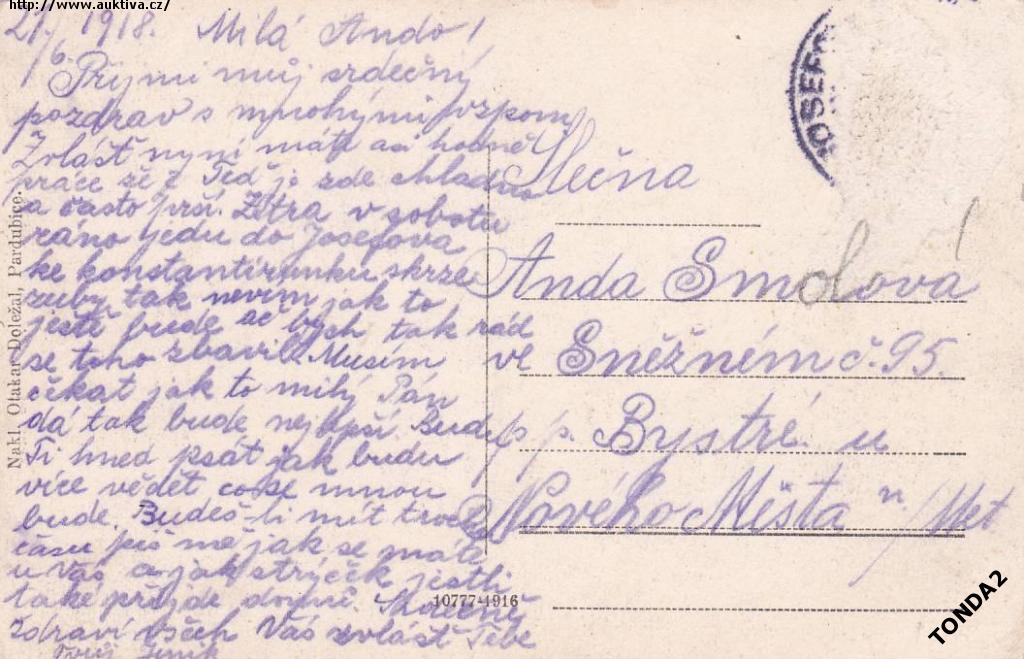 http://www.auktiva.cz/
21/6 1918. Milá Ando!
Přijmi můj srdečný
pozdrav s mnohými vzpom
Zvlášť nyní máte asi hodně
práce že? Teď je zde chladno
a často prší. Zítra v sobotu
ráno jedu do Josefova
ke konstantirunku skrze
zuby tak nevím jak to
ještě bude se bych tak rád
se toho zbavil. Musím
čekat jak to milý Pán
dá tak bude nejlepší. Budu
Ti hned psát jak budu
více vědět co se mnou
bude. Budeš-li mít trochu
času piš mě jak se máte
u Vás a jak strýček jestli
také přijde domů. Srdečně
zdraví všech Vás zvlášť Tebe
Tvůj Jeník
Slečna
Anda Smolová
ve Sněžném č. 95.
p. p. Bystré u
Nového Města n/Met
OSEFO
Nakl. Otakar Doležal, Pardubice.
10777-1916
TONDA2